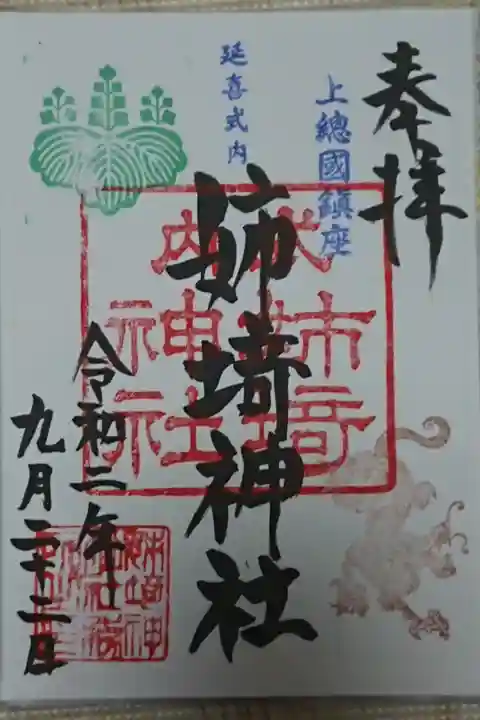 奉拝
上總國鎮座
延喜式内
姉埼神社
令和二年
九月二十二日
式内
姉埼
神社